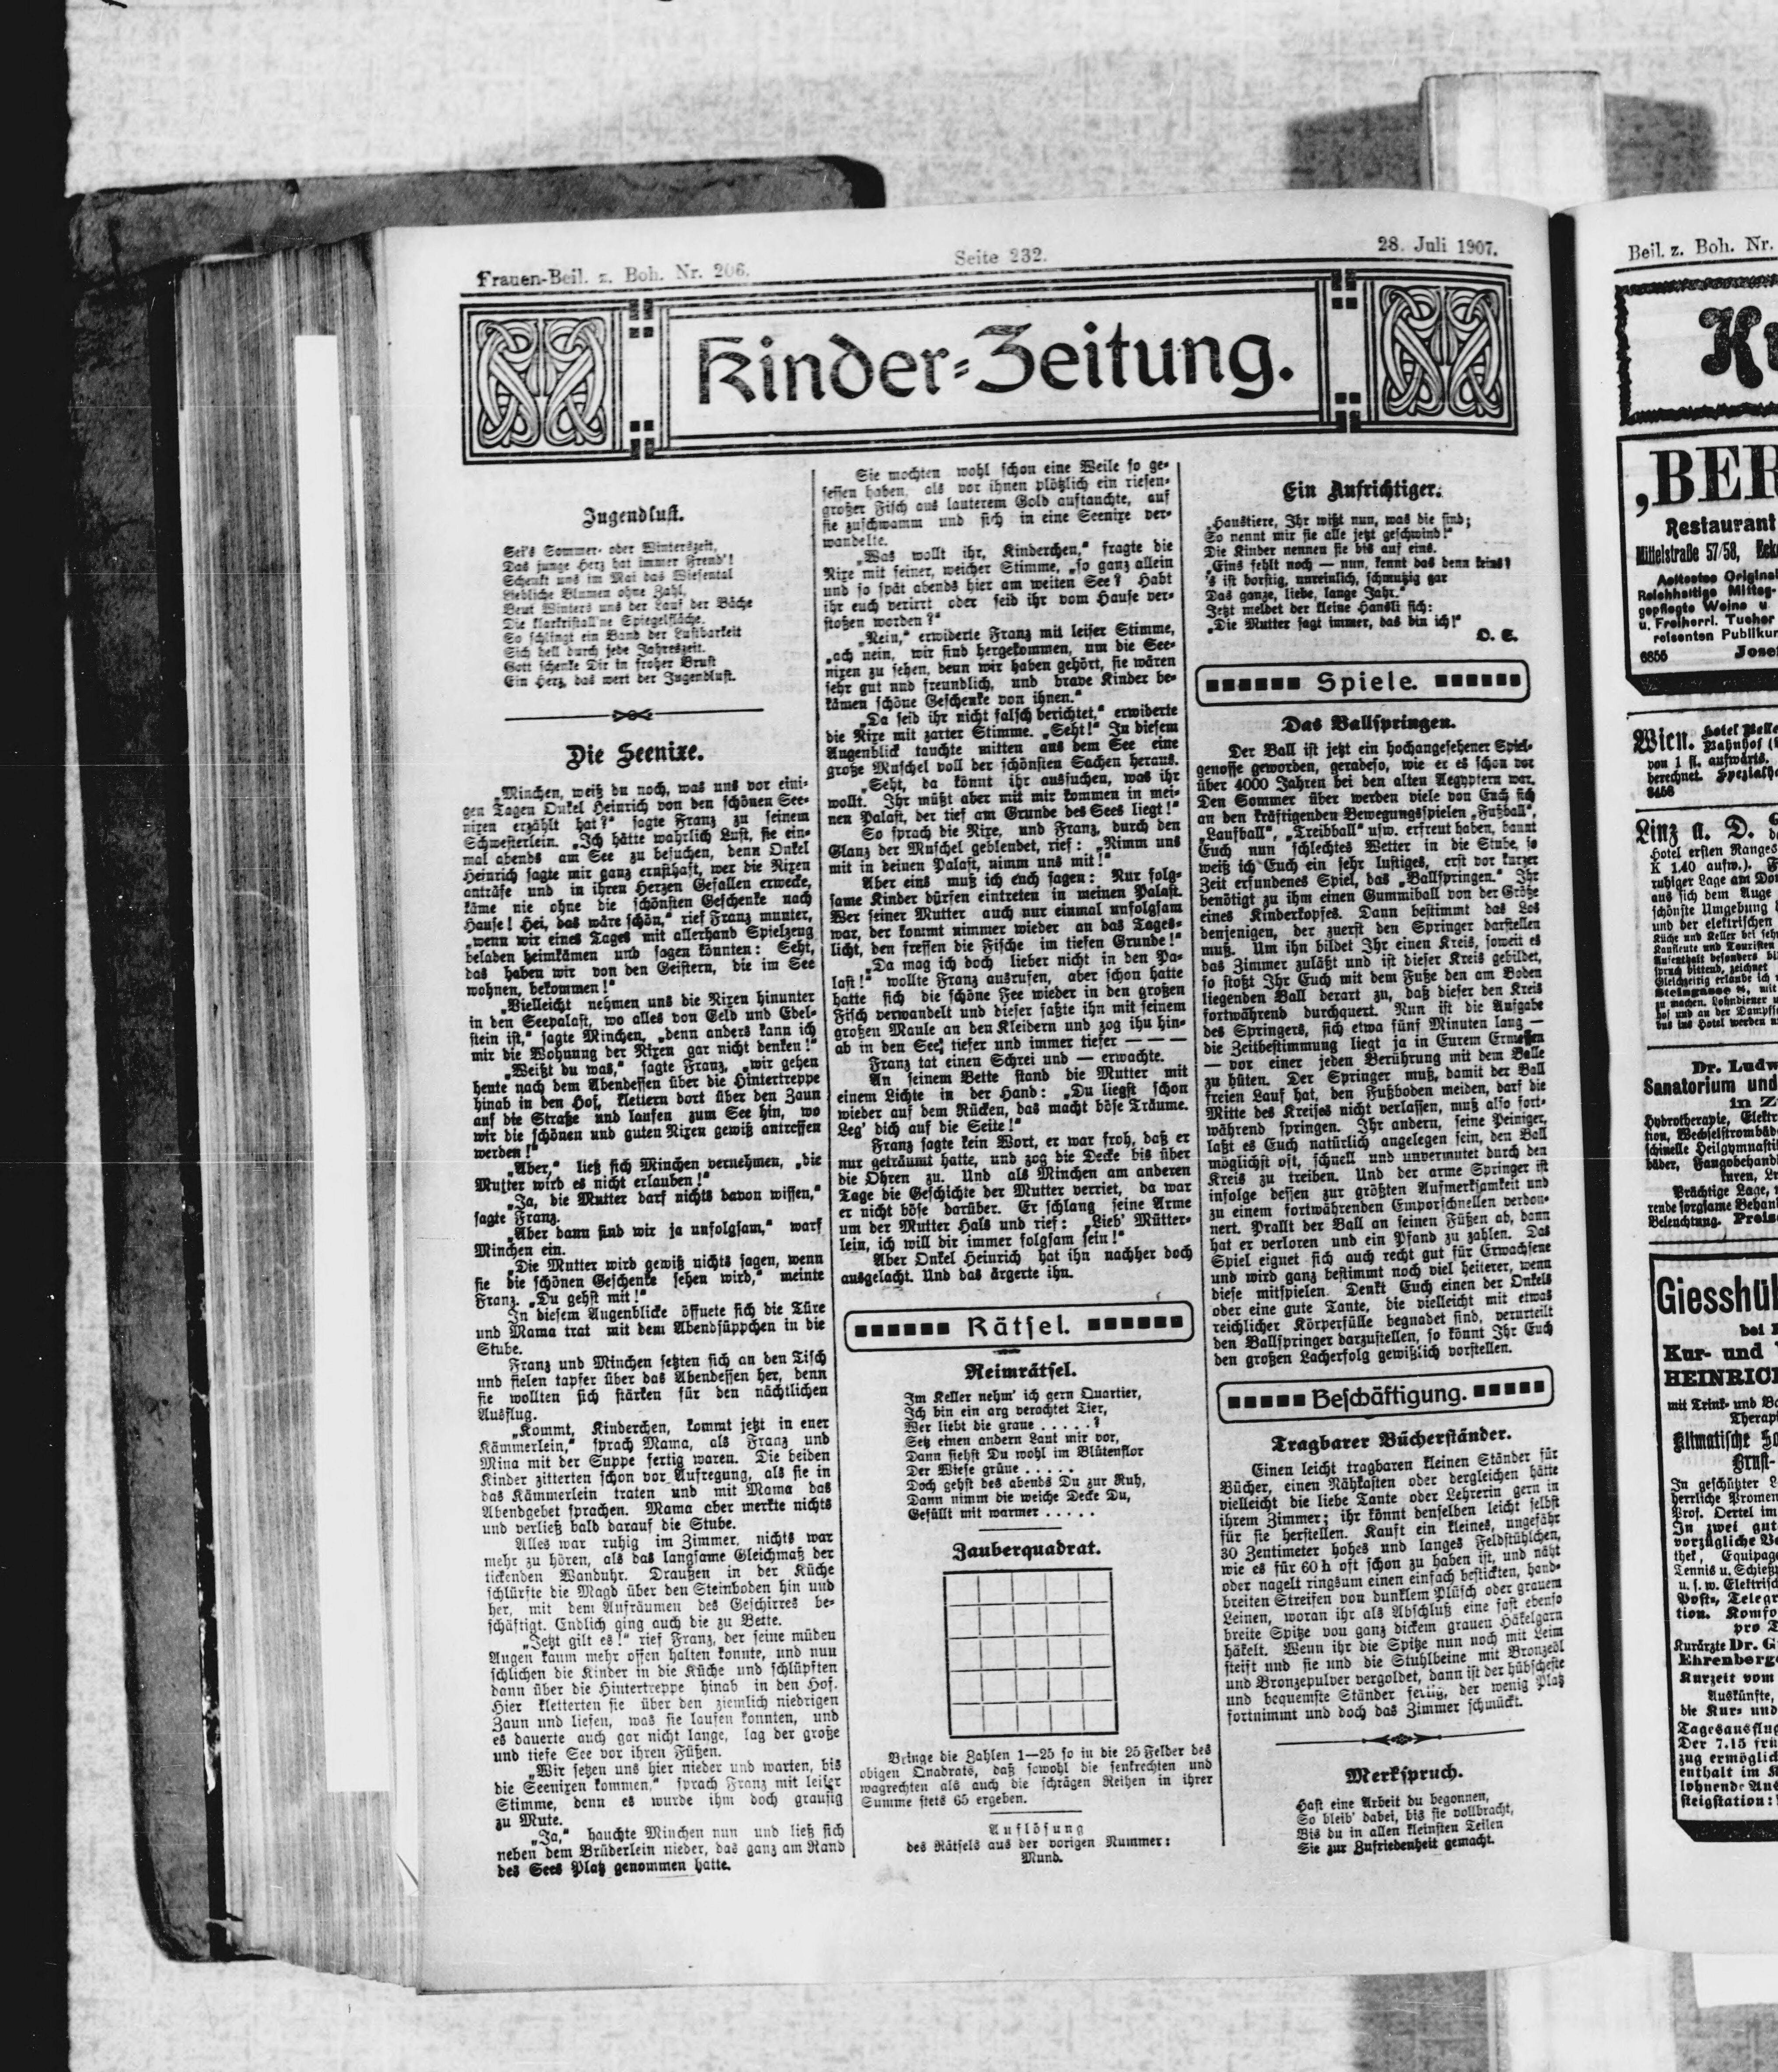 Frauen-Beil. z. Boh. Nr. 206.
Seite 232.
28. Juli 1907.
Kinder-Zeitung.
Jugendlust.
Sei's Sommer- oder Winterszeit,
Das junge Herz hat immer Freud'!
Schenkt uns im Mai das Wiesental
Liebliche Blumen ohne Zahl,
Beut Winters uns der Lauf der Bäche
Die klarkristall'ne Spiegelfläche.
So schlingt ein Band der Lustbarkeit
Sich hell durch jede Jahreszeit.
Gott schenke Dir in froher Brust
Ein Herz, das wert der Jugendlust.
Die Seenixe.
„Minchen, weiß du noch, was uns vor eini-
gen Tagen Onkel Heinrich von den schönen See-
nixen erzählt hat?“ sagte Franz zu seinem
Schwesterlein. „Ich hätte wahrlich Lust, sie ein-
mal abends am See zu besuchen, denn Onkel
Heinrich sagte mir ganz ernsthaft, wer die Nixen
anträfe und in ihren Herzen Gefallen erwecke,
käme nie ohne die schönsten Geschenke nach
Hause! Hei, das wäre schön,“ rief Franz munter,
„wenn wir eines Tages mit allerhand Spielzeug
beladen heimkämen und sagen könnten: Seht,
das haben wir von den Geistern, die im See
wohnen, bekommen!“
„Vielleicht nehmen uns die Nixen hinunter
in den Seepalast, wo alles von Geld und Edel-
stein ist,“ sagte Minchen, „denn anders kann ich
mir die Wohnung der Nixen gar nicht denken!“
„Weißt du was,“ sagte Franz, „wir gehen
heute nach dem Abendessen über die Hintertreppe
hinab in den Hof, klettern dort über den Zaun
auf die Straße und laufen zum See hin, wo
wir die schönen und guten Nixen gewiß antreffen
werden!“
„Aber,“ ließ sich Minchen vernehmen, „die
Mutter wird es nicht erlauben!“
„Ja, die Mutter darf nichts davon wissen,“
sagte Franz.
„Aber dann sind wir ja unfolgsam,“ warf
Minchen ein.
„Die Mutter wird gewiß nichts sagen, wenn
sie die schönen Geschenke sehen wird,“ meinte
Franz. „Du gehst mit!“
In diesem Augenblicke öffnete sich die Türe
und Mama trat mit dem Abendsüppchen in die
Stube.
Franz und Minchen setzten sich an den Tisch
und fielen tapfer über das Abendessen her, denn
sie wollten sich stärken für den nächtlichen
Ausflug.
„Kommt, Kinderchen, kommt jetzt in euer
Kämmerlein,“ sprach Mama, als Franz und
Mina mit der Suppe fertig waren. Die beiden
Kinder zitterten schon vor Aufregung, als sie in
das Kämmerlein traten und mit Mama das
Abendgebet sprachen. Mama aber merkte nichts
und verließ bald darauf die Stube.
Alles war ruhig im Zimmer, nichts war
mehr zu hören, als das langsame Gleichmaß der
tickenden Wanduhr. Draußen in der Küche
schlürfte die Magd über den Steinboden hin und
her, mit dem Aufräumen des Geschirres be-
schäftigt. Endlich ging auch die zu Bette.
„Jetzt gilt es!“ rief Franz, der seine müden
Augen kaum mehr offen halten konnte, und nun
schlichen die Kinder in die Küche und schlüpften
dann über die Hintertreppe hinab in den Hof.
Hier kletterten sie über den ziemlich niedrigen
Zaun und liefen, was sie laufen konnten, und
es dauerte auch gar nicht lange, lag der große
und tiefe See vor ihren Füßen.
„Wir setzen uns hier nieder und warten, bis
die Seenixen kommen,“ sprach Franz mit leiser
Stimme, denn es wurde ihm doch grausig
zu Mute.
„Ja,“ hauchte Minchen nun und ließ sich
neben dem Brüderlein nieder, das ganz am Rand
des Sees Platz genommen hatte.
Sie mochten wohl schon eine Weile so ge-
sessen haben, als vor ihnen plötzlich ein riesen-
großer Fisch aus lauterem Gold auftauchte, auf
sie zuschwamm und sich in eine Seenixe ver-
wandelte.
„Was wollt ihr, Kinderchen,“ fragte die
Nixe mit feiner, weicher Stimme, „so ganz allein
und so spät abends hier am weiten See? Habt
ihr euch verirrt oder seid ihr vom Hause ver-
stoßen worden?“
„Nein,“ erwiderte Franz mit leiser Stimme,
„ach nein, wir sind hergekommen, um die See-
nixen zu sehen, denn wir haben gehört, sie wären
sehr gut und freundlich, und brave Kinder be-
kämen schöne Geschenke von ihnen.“
„Da seid ihr nicht falsch berichtet,“ erwiderte
die Nixe mit zarter Stimme. „Seht!“ In diesem
Augenblick tauchte mitten aus dem See eine
große Muschel voll der schönsten Sachen heraus.
„Seht, da könnt ihr aussuchen, was ihr
wollt. Ihr müßt aber mit mir kommen in mei-
nen Palast, der tief am Grunde des Sees liegt!“
So sprach die Nixe, und Franz, durch den
Glanz der Muschel geblendet, rief: „Nimm uns
mit in deinen Palast, nimm uns mit!“
Aber eins muß ich euch sagen: Nur folg-
same Kinder dürfen eintreten in meinen Palast.
Wer seiner Mutter auch nur einmal unfolgsam
war, der kommt nimmer wieder an das Tages-
licht, den fressen die Fische im tiefen Grunde!“
„Da mag ich doch lieber nicht in den Pa-
last!“ wollte Franz ausrufen, aber schon hatte
hatte sich die schöne Fee wieder in den großen
Fisch verwandelt und dieser faßte ihn mit seinem
großen Maule an den Kleidern und zog ihn hin-
ab in den See, tiefer und immer tiefer — — —
Franz tat einen Schrei und — erwachte.
An seinem Bette stand die Mutter mit
einem Lichte in der Hand: „Du liegst schon
wieder auf dem Rücken, das macht böse Träume.
Leg' dich auf die Seite!“
Franz sagte kein Wort, er war froh, daß er
nur geträumt hatte, und zog die Decke bis über
die Ohren zu. Und als Minchen am anderen
Tage die Geschichte der Mutter verriet, da war
er nicht böse darüber. Er schlang seine Arme
um der Mutter Hals und rief: „Lieb' Mütter-
lein, ich will dir immer folgsam sein!“
Aber Onkel Heinrich hat ihn nachher doch
ausgelacht. Und das ärgerte ihn.
Rätsel.
Reimrätsel.
Im Keller nehm' ich gern Quartier,
Ich bin ein arg verachtet Tier,
Wer liebt die graue . . . . . ?
Setz einen andern Laut mir vor,
Dann siehst Du wohl im Blütenflor
Der Wiese grüne . . . . .
Doch gehst des abends Du zur Ruh,
Dann nimm die weiche Decke Du,
Gefüllt mit warmer . . . . .
Zauberquadrat.
Bringe die Zahlen 1—25 so in die 25 Felder des
obigen Quadrats, daß sowohl die senkrechten und
wagrechten als auch die schrägen Reihen in ihrer
Summe stets 65 ergeben.
Auflösung
des Rätsels aus der vorigen Nummer:
Mund.
Ein Aufrichtiger.
„Haustiere, Ihr wißt nun, was die sind;
So nennt mir sie alle jetzt geschwind!“
Die Kinder nennen sie bis auf eins.
„Eins fehlt noch — nun, kennt das denn keins?
's ist borstig, unreinlich, schmutzig gar
Das ganze, liebe, lange Jahr.“
Jetzt meldet der kleine Hansli sich:
„Die Mutter sagt immer, das bin ich!“
O. E.
Spiele.
Das Ballspringen.
Der Ball ist jetzt ein hochangesehener Spiel-
genosse geworden, geradeso, wie er es schon vor
über 4000 Jahren bei den alten Aegyptern war.
Den Sommer über werden viele von Euch sich
an den kräftigenden Bewegungsspielen „Fußball“,
„Laufball“, „Treibball“ usw. erfreut haben, bannt
Euch nun schlechtes Wetter in die Stube, so
weiß ich Euch ein sehr lustiges, erst vor kurzer
Zeit erfundenes Spiel, das „Ballspringen.“ Ihr
benötigt zu ihm einen Gummiball von der Größe
eines Kinderkopfes. Dann bestimmt das Los
denjenigen, der zuerst den Springer darstellen
muß. Um ihn bildet Ihr einen Kreis, soweit es
das Zimmer zuläßt und ist dieser Kreis gebildet,
so stoßt Ihr Euch mit dem Fuße den am Boden
liegenden Ball derart zu, daß dieser den Kreis
fortwährend durchquert. Nun ist die Aufgabe
des Springers, sich etwa fünf Minuten lang —
die Zeitbestimmung liegt ja in Eurem Ermessen
— vor einer jeden Berührung mit dem Balle
zu hüten. Der Springer muß, damit der Ball
freien Lauf hat, den Fußboden meiden, darf die
Mitte des Kreises nicht verlassen, muß also fort-
während springen. Ihr andern, seine Peiniger,
laßt es Euch natürlich angelegen sein, den Ball
möglichst oft, schnell und unvermutet durch den
Kreis zu treiben. Und der arme Springer ist
infolge dessen zur größten Aufmerksamkeit und
zu einem fortwährenden Emporschnellen verdon-
nert. Prallt der Ball an seinen Füßen ab, dann
hat er verloren und ein Pfand zu zahlen. Das
Spiel eignet sich auch recht gut für Erwachsene
und wird ganz bestimmt noch viel heiterer, wenn
diese mitspielen. Denkt Euch einen der Onkels
oder eine gute Tante, die vielleicht mit etwas
reichlicher Körperfülle begnadet sind, verurteilt
den Ballspringer darzustellen, so könnt Ihr Euch
den großen Lacherfolg gewißlich vorstellen.
Beschäftigung.
Tragbarer Bücherständer.
Einen leicht tragbaren kleinen Ständer für
Bücher, einen Nähkasten oder dergleichen hätte
vielleicht die liebe Tante oder Lehrerin gern in
ihrem Zimmer; ihr könnt denselben leicht selbst
für sie herstellen. Kauft ein kleines, ungefähr
30 Zentimeter hohes und langes Feldstühlchen,
wie es für 60 h oft schon zu haben ist, und näht
oder nagelt ringsum einen einfach bestickten, hand-
breiten Streifen von dunklem Plüsch oder grauem
Leinen, woran ihr als Abschluß eine fast ebenso
breite Spitze von ganz dickem grauen Häkelgarn
häkelt. Wenn ihr die Spitze nun noch mit Leim
steift und sie und die Stuhlbeine mit Bronzeöl
und Bronzepulver vergoldet, dann ist der hübscheste
und bequemste Ständer fertig, der wenig Platz
fortnimmt und doch das Zimmer schmückt.
Merkspruch.
Hast eine Arbeit du begonnen,
So bleib' dabei, bis sie vollbracht,
Bis du in allen kleinsten Teilen
Sie zur Zufriedenheit gemacht.
Beil. z. Boh. Nr.
‚BER
Restaurant
Mittelstraße 57/58,
Aeltestes Original
Reichhaltige Mittag-
gepflegte Weine u.
u. Freiherrl. Tucher
reisenten Publikum
6855 Josef
Wien.
von 1 fl. aufwärts.
berechnet.
8456
Linz a. D.
Hotel ersten Ranges
K 1.40 aufw.).
ruhiger Lage am Do
aus sich dem Auge
schönste Umgebung
und der elektrischen
Dr. Ludw
Sanatorium und
in Z
Hydrotherapie, Elektr
tion, Wechselstrombäd
schinelle Heilgymnasti
bäder, Fangobehandl
Prächtige Lage,
rende sorgsame Behan
Beleuchtung. Preise
Giesshü
bei
Kur- und
HEINRICH
mit Trink- und Ba
Therapi
Klimatische
Brust-
In geschützter L
herrliche Promen
Prof. Oertel im
In zwei gut
vorzügliche Ve
thek, Equipage
Tennis u. Schieß
u. s. w. Elektrisch
Post-, Telegr
tion. Komfo
pro T
Kurärzte Dr. G
Ehrenberge
Kurzeit vom
Auskünfte,
die Kur- und
Tagesausflug
Der 7.15 frü
zug ermöglich
enthalt im K
lohnende Aus
steigstation: